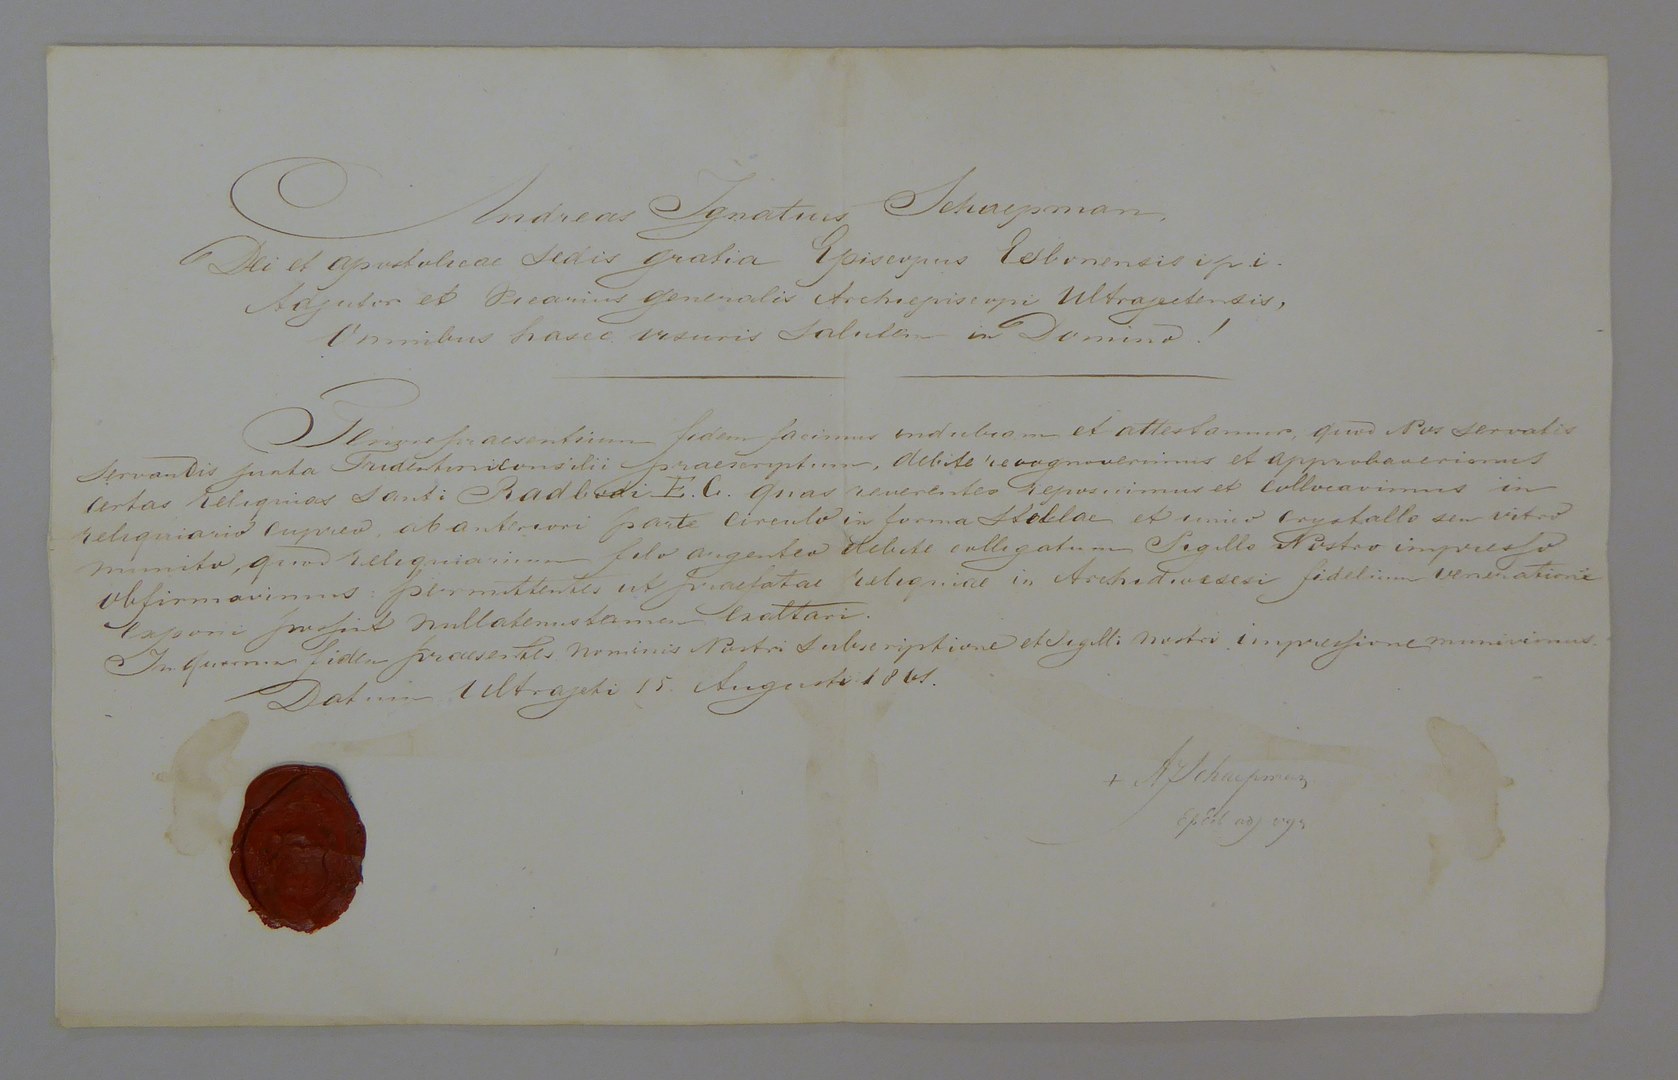 Andreas Ignatius Schaepman,
Dei et apostolicae Sedis gratia Episcopus Esbonensis i. p. i.
Adjutor et Vicarius generalis Archiepiscopi Ultrajectensis,
Omnibus hasce visuris Salutem in Domino!
Tenore praesentium fidem facimus indubiam et attestamur, quod Nos servatis
servandis juxta Tridentini Consilii praescriptum, debite recognoverimus et approbaverimus
certas reliquias Sancti Radbodi E. C. quas reverenter reposuimus et collocavimus in
reliquiario cupreo, ab anteriori parte circulo in forma Stellae et unico crystallo seu vitro
munito, quod reliquiarium filo argenteo debite colligatum Sigillo Nostro impresso
obfirmavimus: permittentes ut praefatae reliquiae in Archidioecesi fidelium venerationi
exponi possint nullatenus tamen
In quorum fidem praesentes nominis Nostri Subscriptione et Sigilli nostri impressione munivimus.
Datum Ultrajecti 15. Augusti
+ A J Schaepman